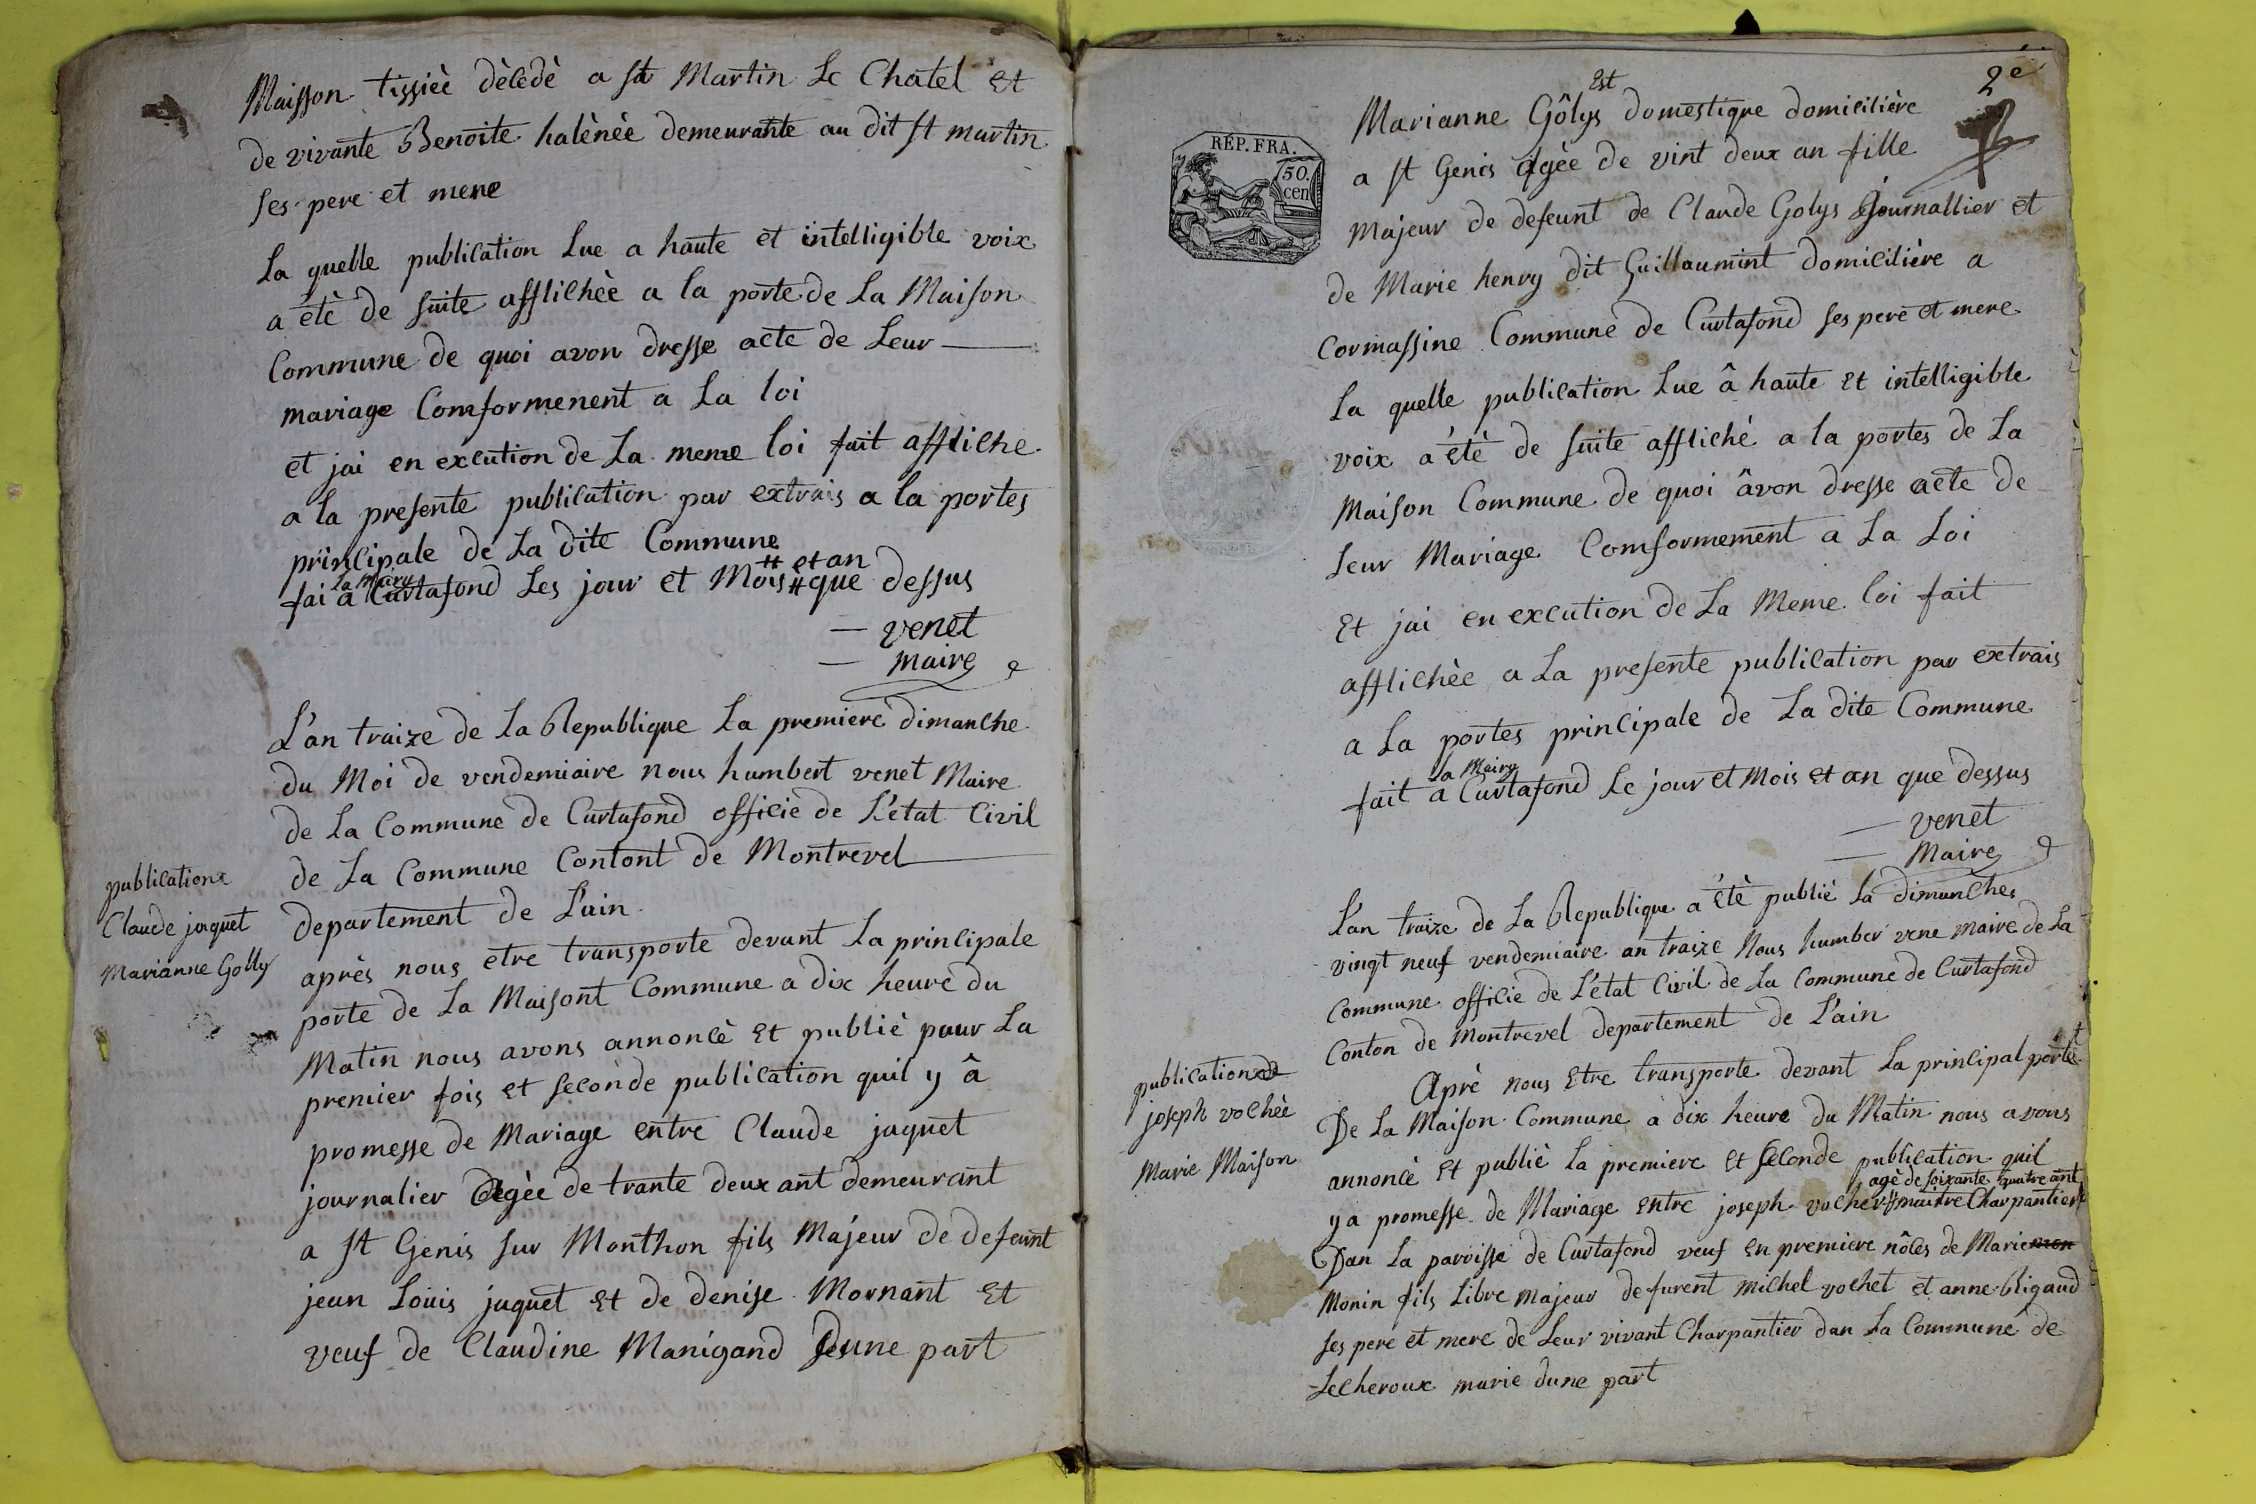 Maisson tissiéè dècèdè a st Martin Le Chatel Et
de vivante Benoite halènèe demeurante au dit st martin
ses pere et mere
La quelle publication Lue a haute et intelligible voix
a étè de suite afflichèe a la porte de La Maison
Commune de quoi avon dresse acte de Leur
mariage Comformenent a La loi
et jai en excution de La meme loi fait affliche
a la presente publication par extrais a la portes
principale de La dite Commune
# et an
La Mary
fai a Curtafond Les jour et Mois # que dessus
venet
Maire
L'an traize de La Republique La premiere dimanche
du Moi de vendemiaire nous humbert venet Maire
de La Commune de Curtafond officie de L'état Civil
de La Commune Contont de Montrevel
departement de L'ain
publication
Claude jaquet
Marianne Golly
après nous etre transporte devant La principale
porte de La Maisont Commune a dix heure du
Matin nous avons annoncè Et publiè pour La
premier fois Et seconde publication quil y â
promesse de Mariage entre Claude jaquet
journalier agèe de trante deux ant demeurant
a st Genis sur Monthon fils Majeur de defeunt
jean Louis jaquet Et de denise Mornant Et
veuf de Claudine Manigand dune part
2e
Est
Marianne Gôlys domestique domicilière
RÉP. FRA.
50.
cen
a st Genis agèe de vint deux an fille
majeur de defeunt de Claude Golys journallier et
de Marie henry dit Guillaumint domicilière a
Cormassine Commune de Curtafond ses pere et mere
La quelle publication Lue â haute Et intelligible
voix a étè de suite affliché a la portes de La
Maison Commune de quoi âvon dresse acte de
Leur Mariage Comformement a La Loi
Et jai en excution de La Meme loi fait
afflichèe a La presente publication par extrais
a La portes principale de La dite Commune
a Mairy
fait a Curtafond Le jour et Mois et an que dessus
venet
Maire
L'an traize de La Republique a étè publié La dimanches
vingt neuf vendemiaire an traize Nous humber vene maire de La
Commune officie de L'état Civil de La Commune de Curtafond
Conton de Montrevel departement de L'ain
publication
joseph vochèe
Marie Maison
Aprè nous Etre transporte devant La principal porte
De La Maison Commune a dix heure du Matin nous avons
annoncè Et publiè La premiere Et seconde publication quil
agè de soixante quatre ant
ya promesse de Mariage Entre joseph vocher # maitre Charpantier
Dan La paroisse de Curtafond veuf En premiere nôces de Marie
Monin fils Libre Majeur defurent Michel vochet et anne Rigaud
ses pere et mere de Leur vivant Charpantier dan La Commune de
Lecheroux marie dune part